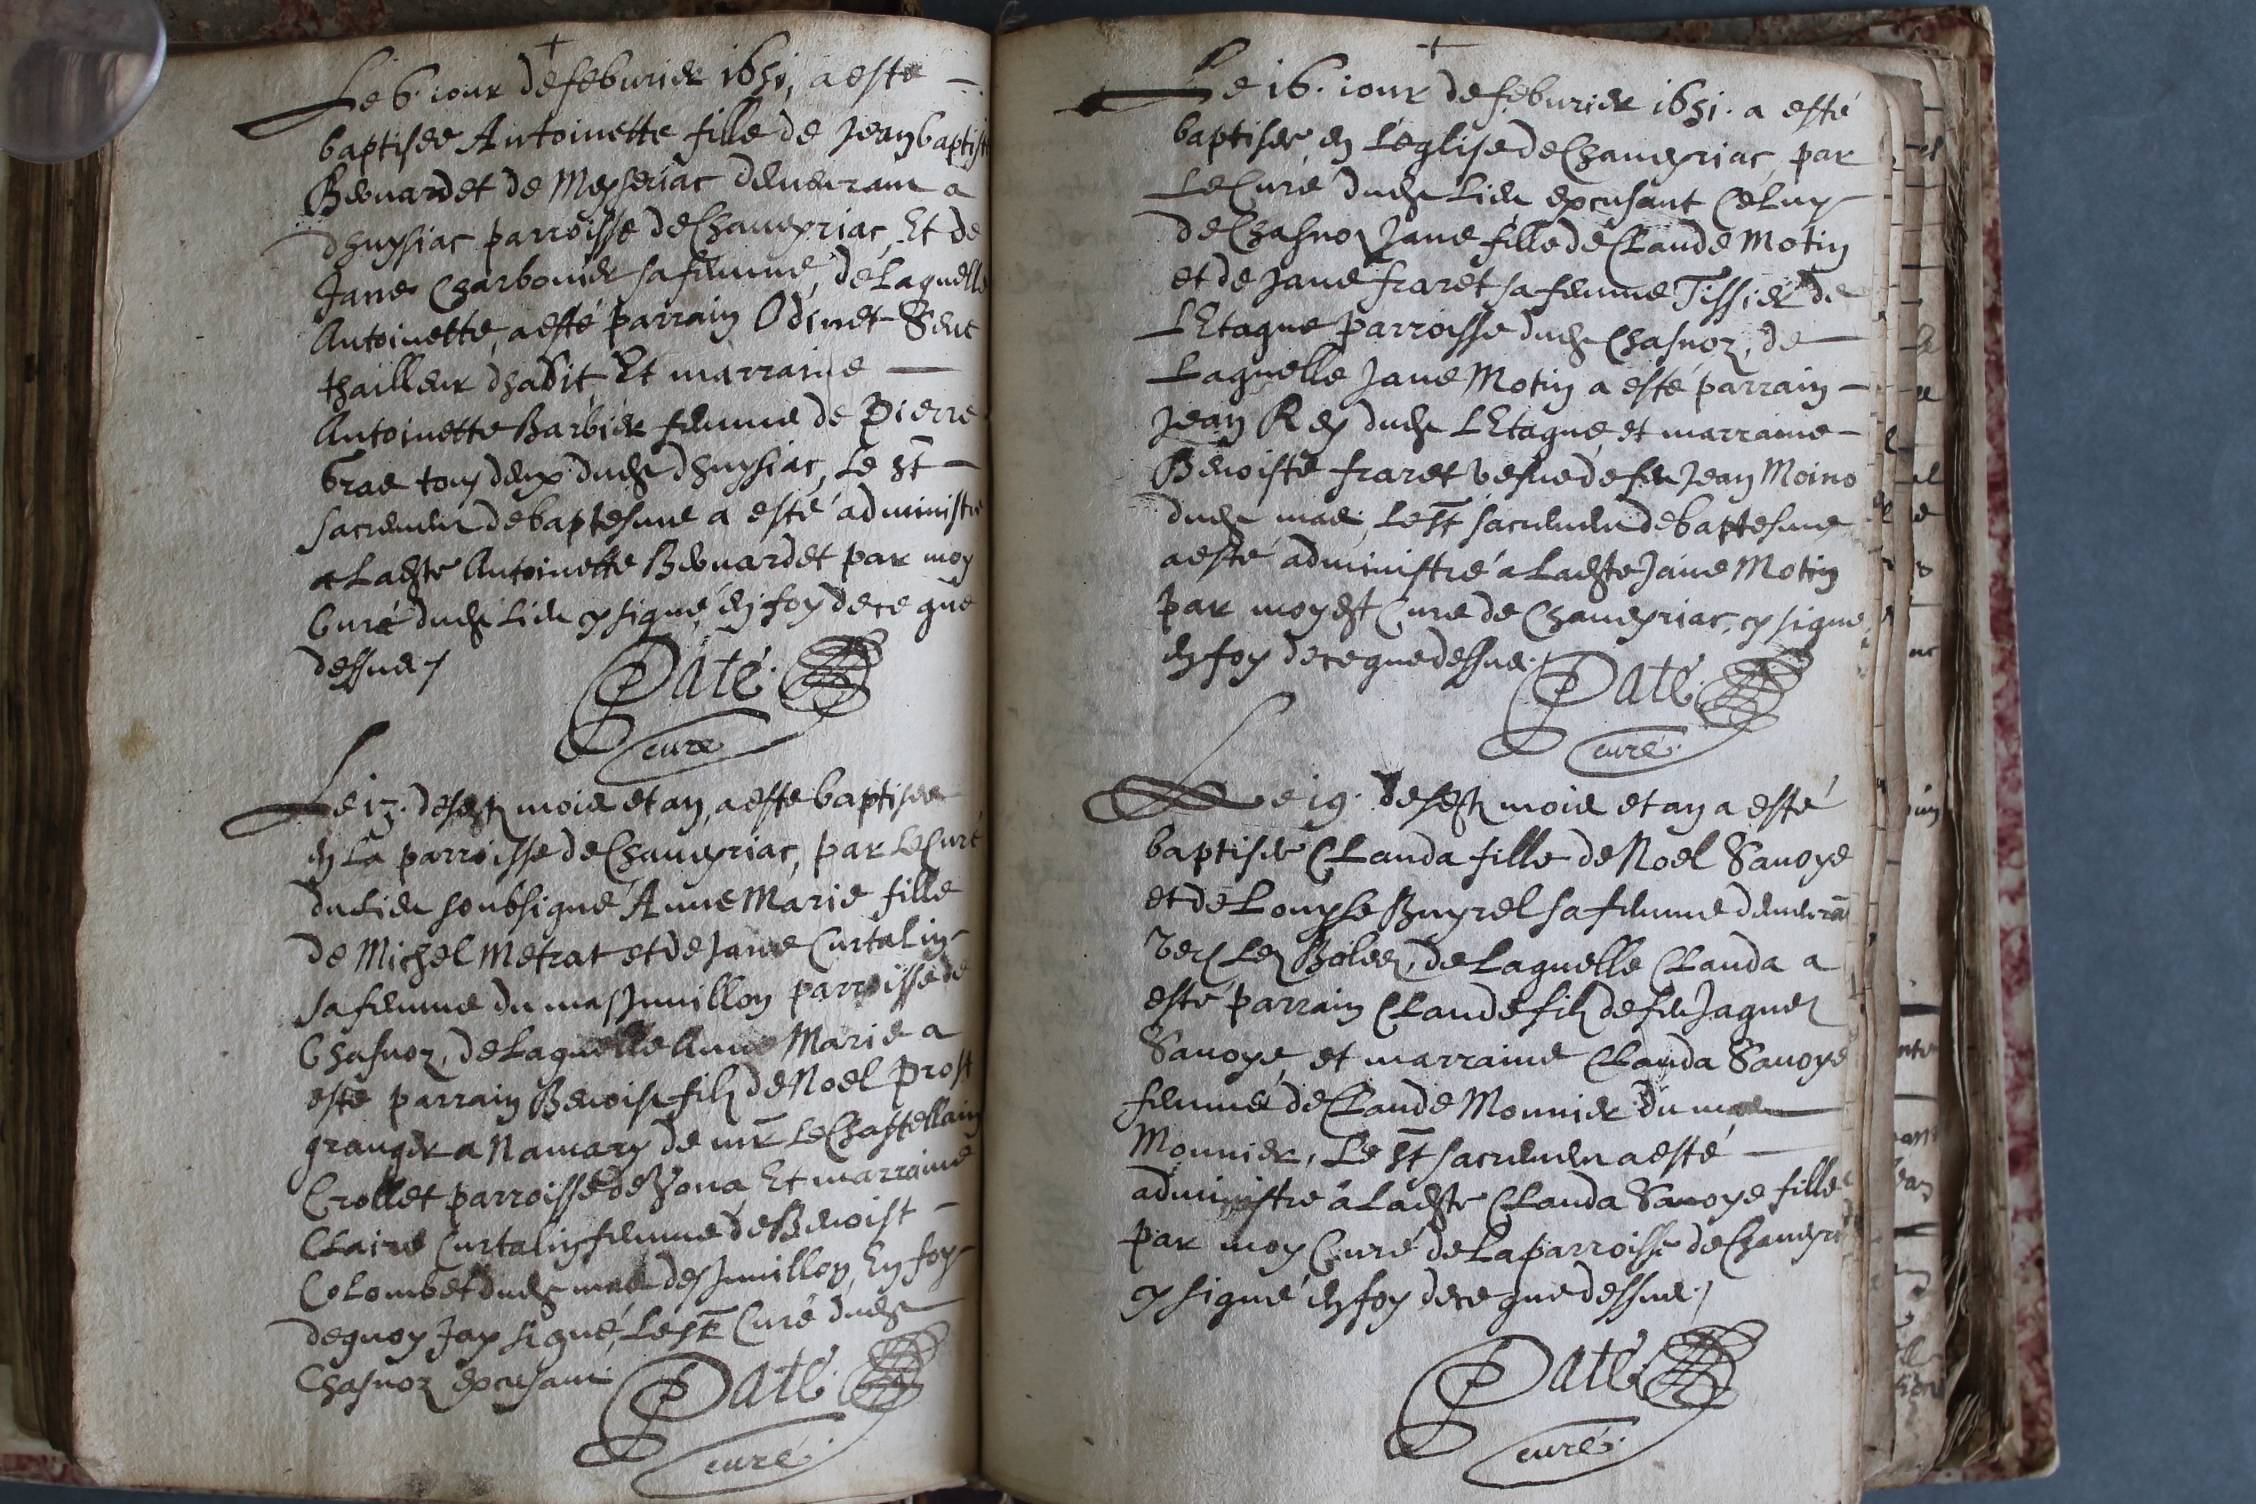 Le 6. iour de feburier 1651, a esté
baptisee Antoinette fille de Jean baptiste
Beouardet de Meyseriac demeurant a
dhuysiac parroisse de Chaueyriac, Et de
Jane Charbonier sa femme, de Laquelle
Antoinette, a esté parrain Odinet
thailleur dhabit Et marraine
Antoinette Barbier femme de Pierre
tous deux dudt dhuysiac, Le st
sacrement de baptesme a esté administré
a Ladte Antoinette Beouardet par moy
Curé dudt Lieu cy signé en foy de ce que
dessus /
Paté.
curé
Le 13. desdt mois et an, a esté baptisee
en La parroisse de Chaueyriac, par Le Curé
du Lieu soubsigné Anne Marie fille
de Michel Metrat et de Jane Curtalin
sa femme du mas Juuillon parroisse de
Chasnoz, de Laquelle Anne Marie a
esté parrain Benoist filz de Noel Prost
granger a Namary de mr Le Chastellain
Crollet parroisse de Vona Et marraine
Claire Curtalin femme de Benoist
Colombet dudt mas des Juuillon, En foy
dequoy Jay signé, Le sr Curé dudt
Chasnoz excusant
Paté.
curé.
Le 16. iour de feburier 1651. a esté
baptisee en Leglise de Chaueyriac, par
Le Curé dudt Lieu excusant Celuy
de Chasnoz Jane fille de Claude Motin
et de Jane fraret sa femme Tissier de
LEtague parroisse dudt Chasnoz, de
Laquelle Jane Motin a esté parrain
Jean Rey dudt LEtague et marraine
Benoiste fraret vefue de feu Jean Moino
dudt mas, Le st sacrement de baptesme
a esté administré a Ladte Jane Motin
par moy dt Curé de Chaueyriac, cy signé
en foy de ce que dessus.
Paté.
curé.
Le 19. desdt mois et an a esté
baptisee Clauda fille de Noel Sauoye
et de Louyse Buyrel sa femme demeurãt
vers Les Boles, de Laquelle Clauda a
esté parrain Claude filz de feu Jaques
Sauoye, et marraine Clauda Sauoye
femme de Claude Monnier du mas
Monnier, Le st sacrement a esté
administré a Ladte Clauda Sauoye fille
par moy Curé de La parroisse de Chaueyri
cy signé en foy de ce que dessus /
Paté.
curé.